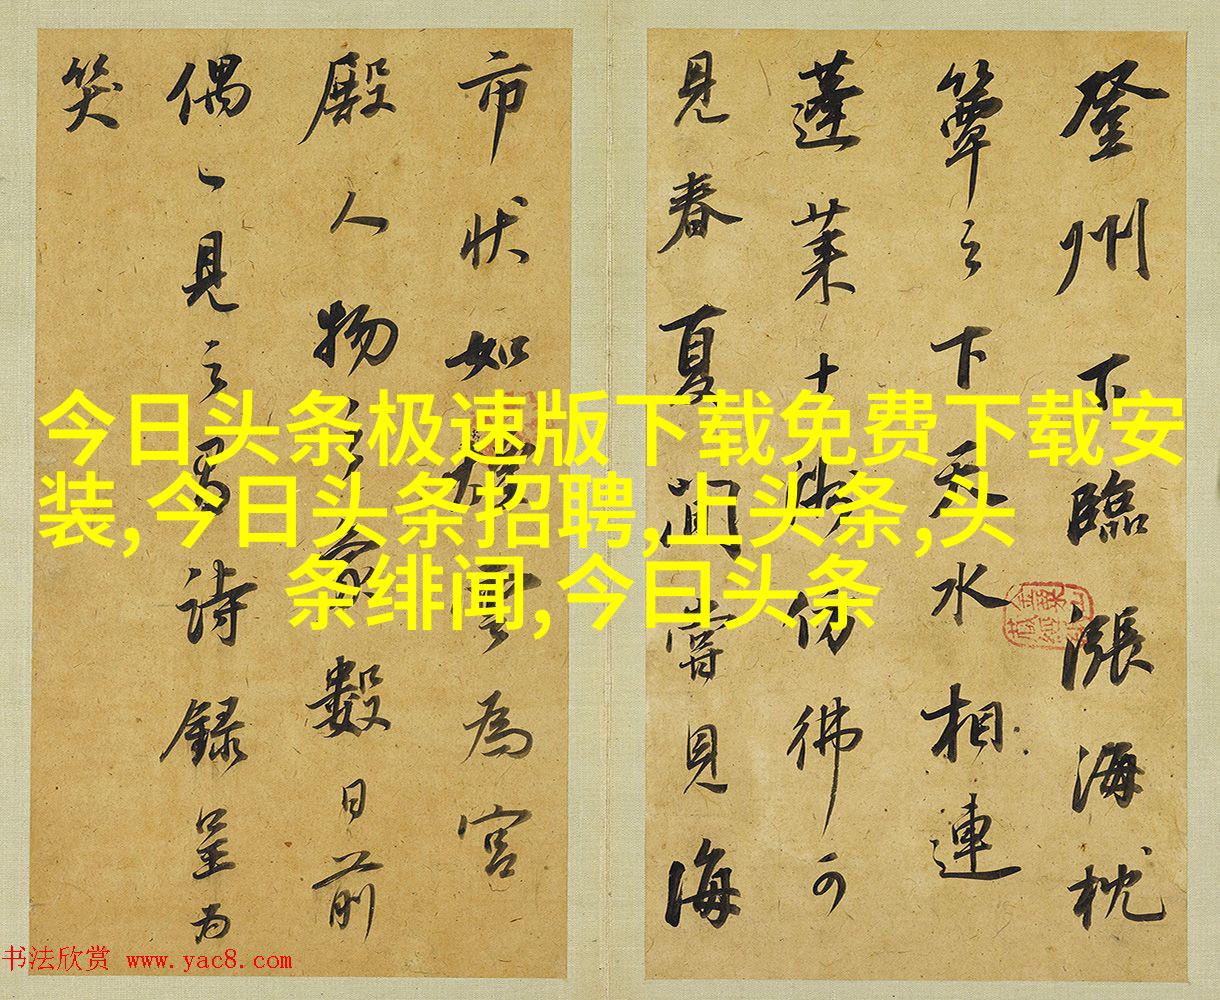 登州下臨漲海枕
簟之下天水相連
蓬萊十洲仿彿可
見春夏間嘗見海
市狀如樓為宮
殿人物之象數日前
偶一見之詩錄呈為
笑
今日头条极速版下载免费下载安
装,今日头条招聘,上头条,头
条绯闻,今曰头条
书法欣赏 www.yac8.com